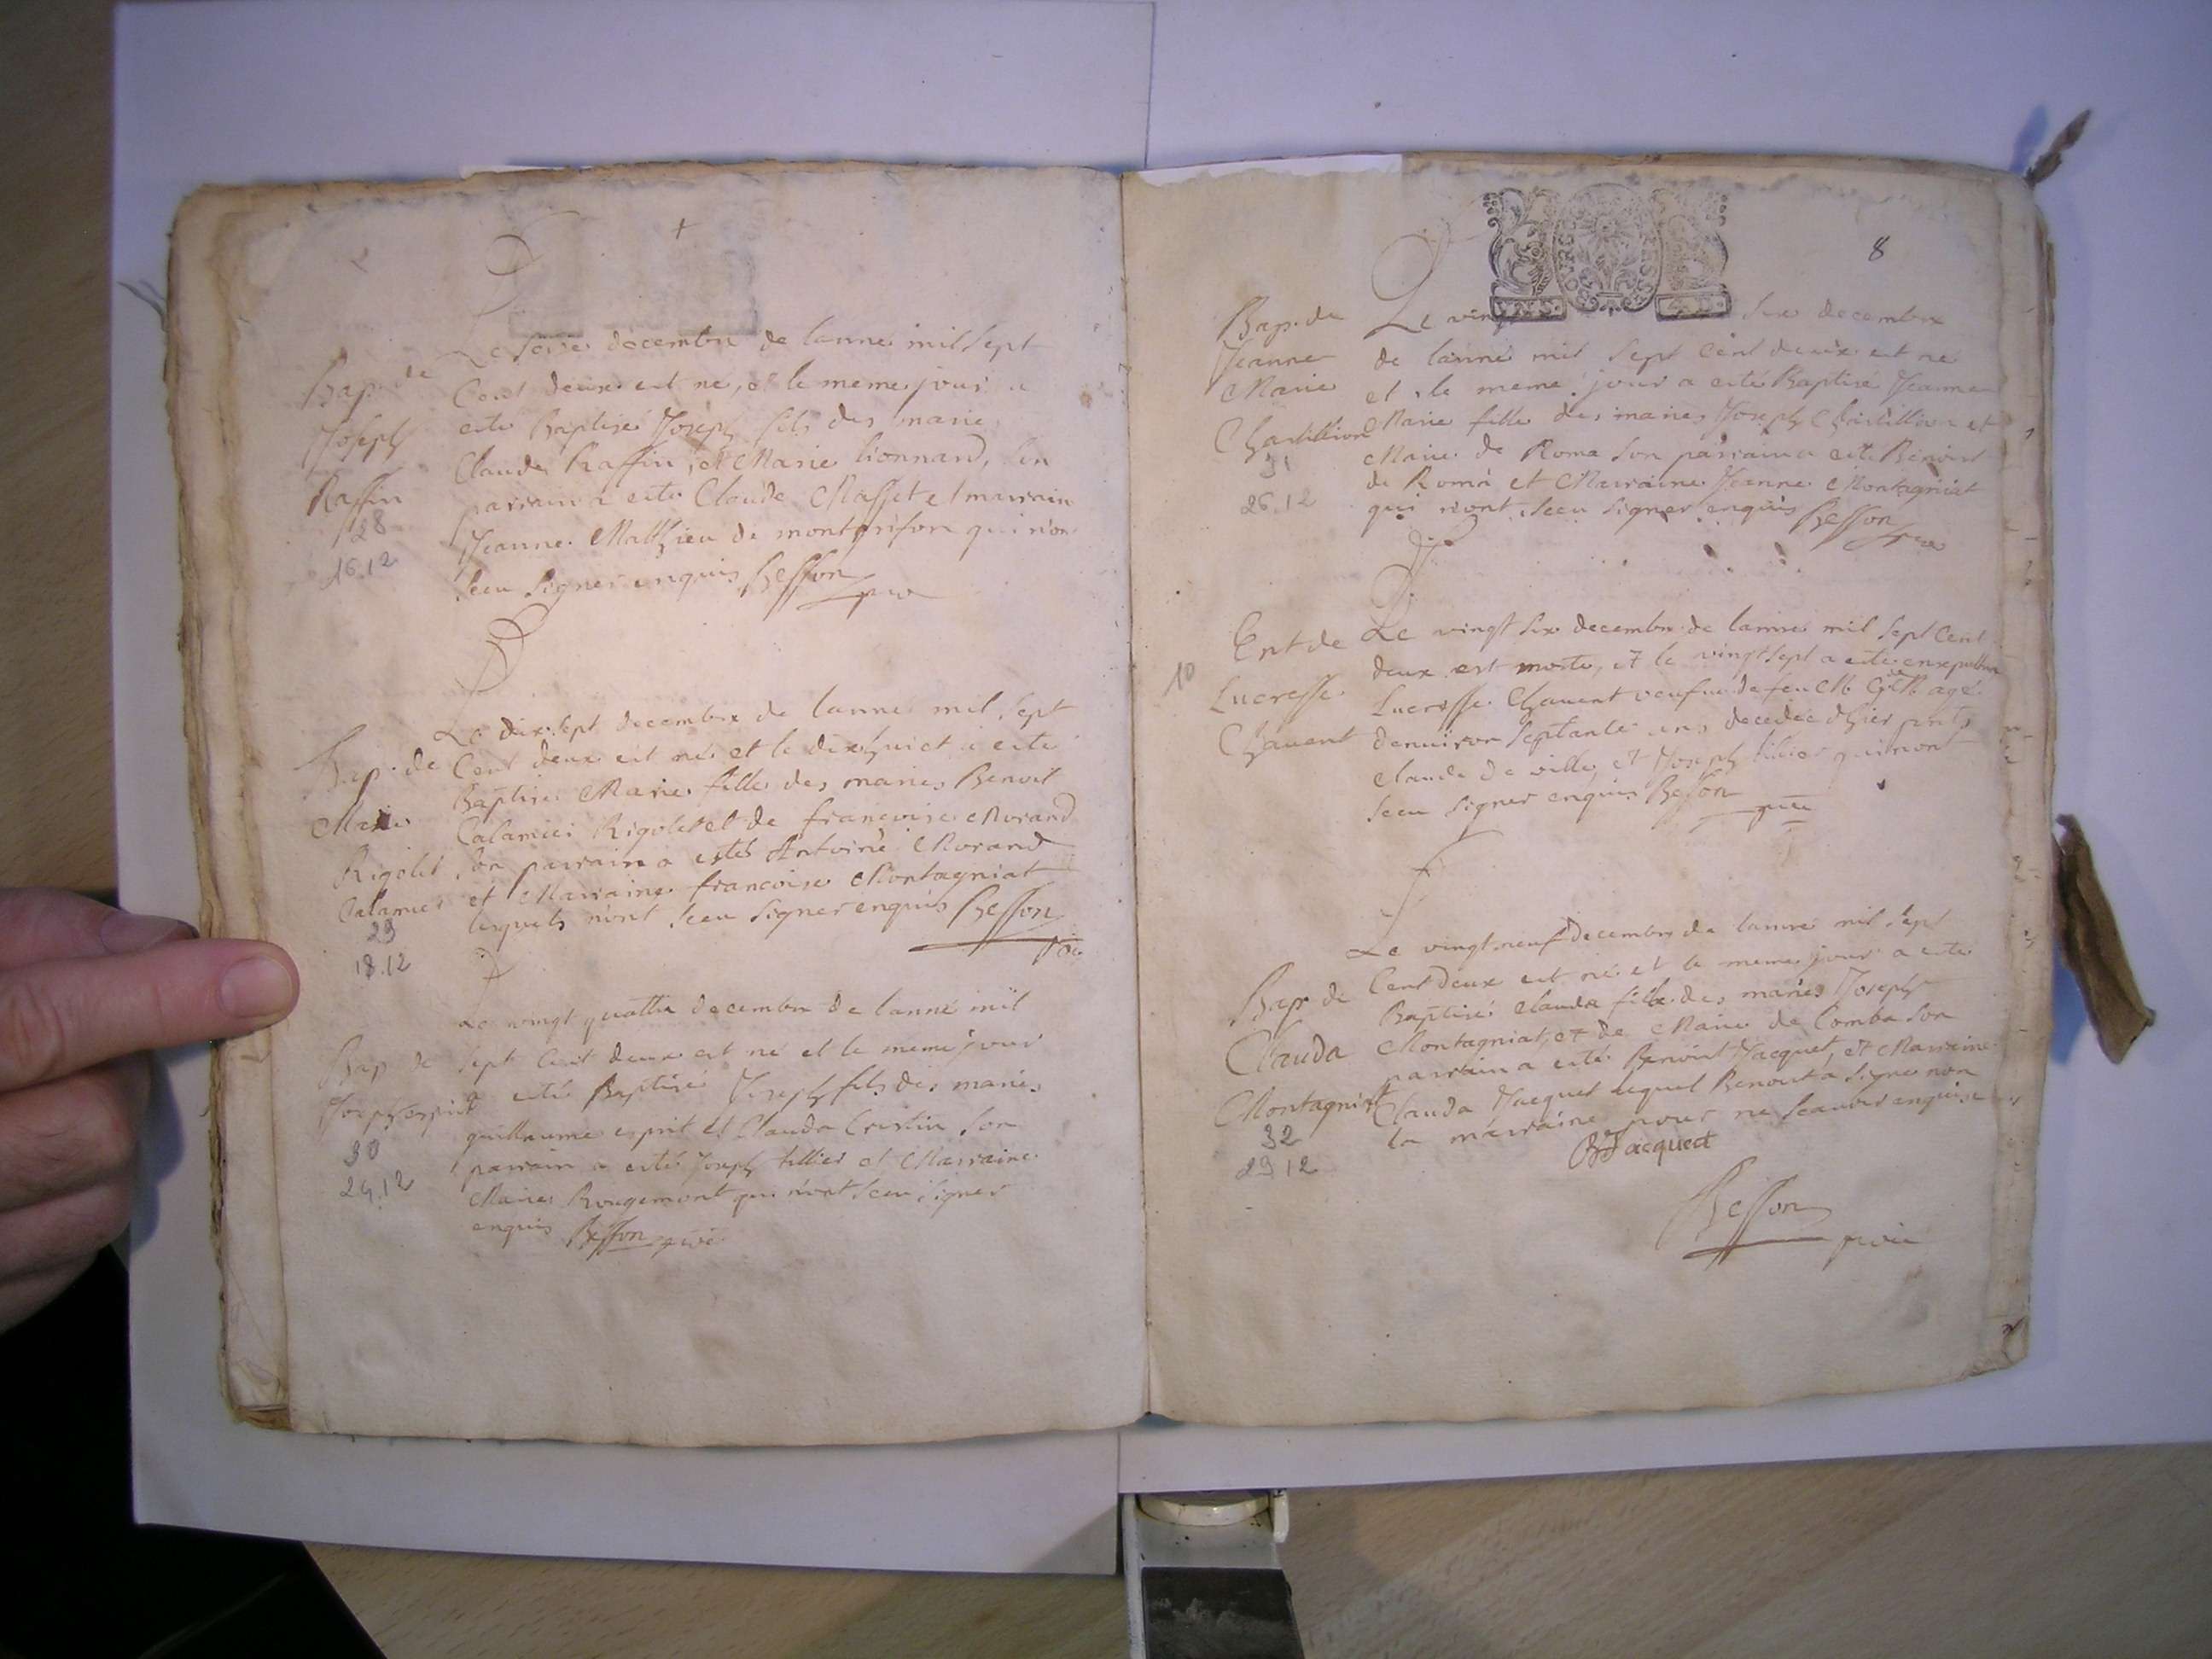 Bap. de
Joseph
Raffin
128
16.12
Le seize decembre de lanne mil sept
Cent deux est né, et le meme jour a
esté Baptisé Joseph fils des maries
Claude Raffin, et Marie Lionnard, son
parrain a esté Claude Masset et marraine
Jeanne Matthieu de montgrifon qui n'on
sceu signer enquis Besson
Bap. de
Marie
Rigolet
Calamier
29
18.12
Le dix sept decembre de lanne mil sept
Cent deux est né et le dixhuict a esté
Baptisé Marie fille des maries Benoit
Calamier Rigolet et de francoise Morand
son parrain a estés Antoine Morand
et Marraine francoise Montagniat
lesquels n'ont sceu signer enquis Besson
Bap de
Joseph esprit
30
24.12
Le vingt quattre decembre de lanné mil
sept cent deux est né et le meme jour
a esté Baptisé Joseph fils des maries
guillaume esprit et Clauda Cristin son
parrain a esté Joseph tillier et Marraine
Marie Rougemont qui n'ont sceu signer
enquis Besson
8
Bap. de
Jeanne
Marie
Chastillion
31
26.12
Le vingt six decembre
de lanné mil sept cent deux est né
et le meme jour a esté Baptisé Jeanne
Marie fille des maries Joseph Chastillion et
Marie de Roma son parrain a esté Benoist
de Roma et Marraine Jeanne Montagniat
qui n'ont sceu signer enquis Besson
10
Ent de
Lucresse
Chavent
Le vingt six decembre de lanne mil sept cent
deux est morte, et le vingt sept a esté ensepulturé
Lucresse Chavent veufue de feu agé
denuiron septante ans decedée d'hier pnts
claude de ville, et Joseph tillier qui n'ont
sceu signer enquis Besson
Bap. de
Clauda
Montagniat
32
29.12
Le vingt neuf decembre de lanne mil sept
Cent deux est né et le meme jour a esté
Baptisé clauda fille des maries Joseph
Montagniat, et de Marie de Comba son
parrain a esté Benoist Jacquet, et Marraine
Clauda Jacquet lequel Benoist a signé non
la marraine pour ne scauoir enquise
B Jacquet
Besson